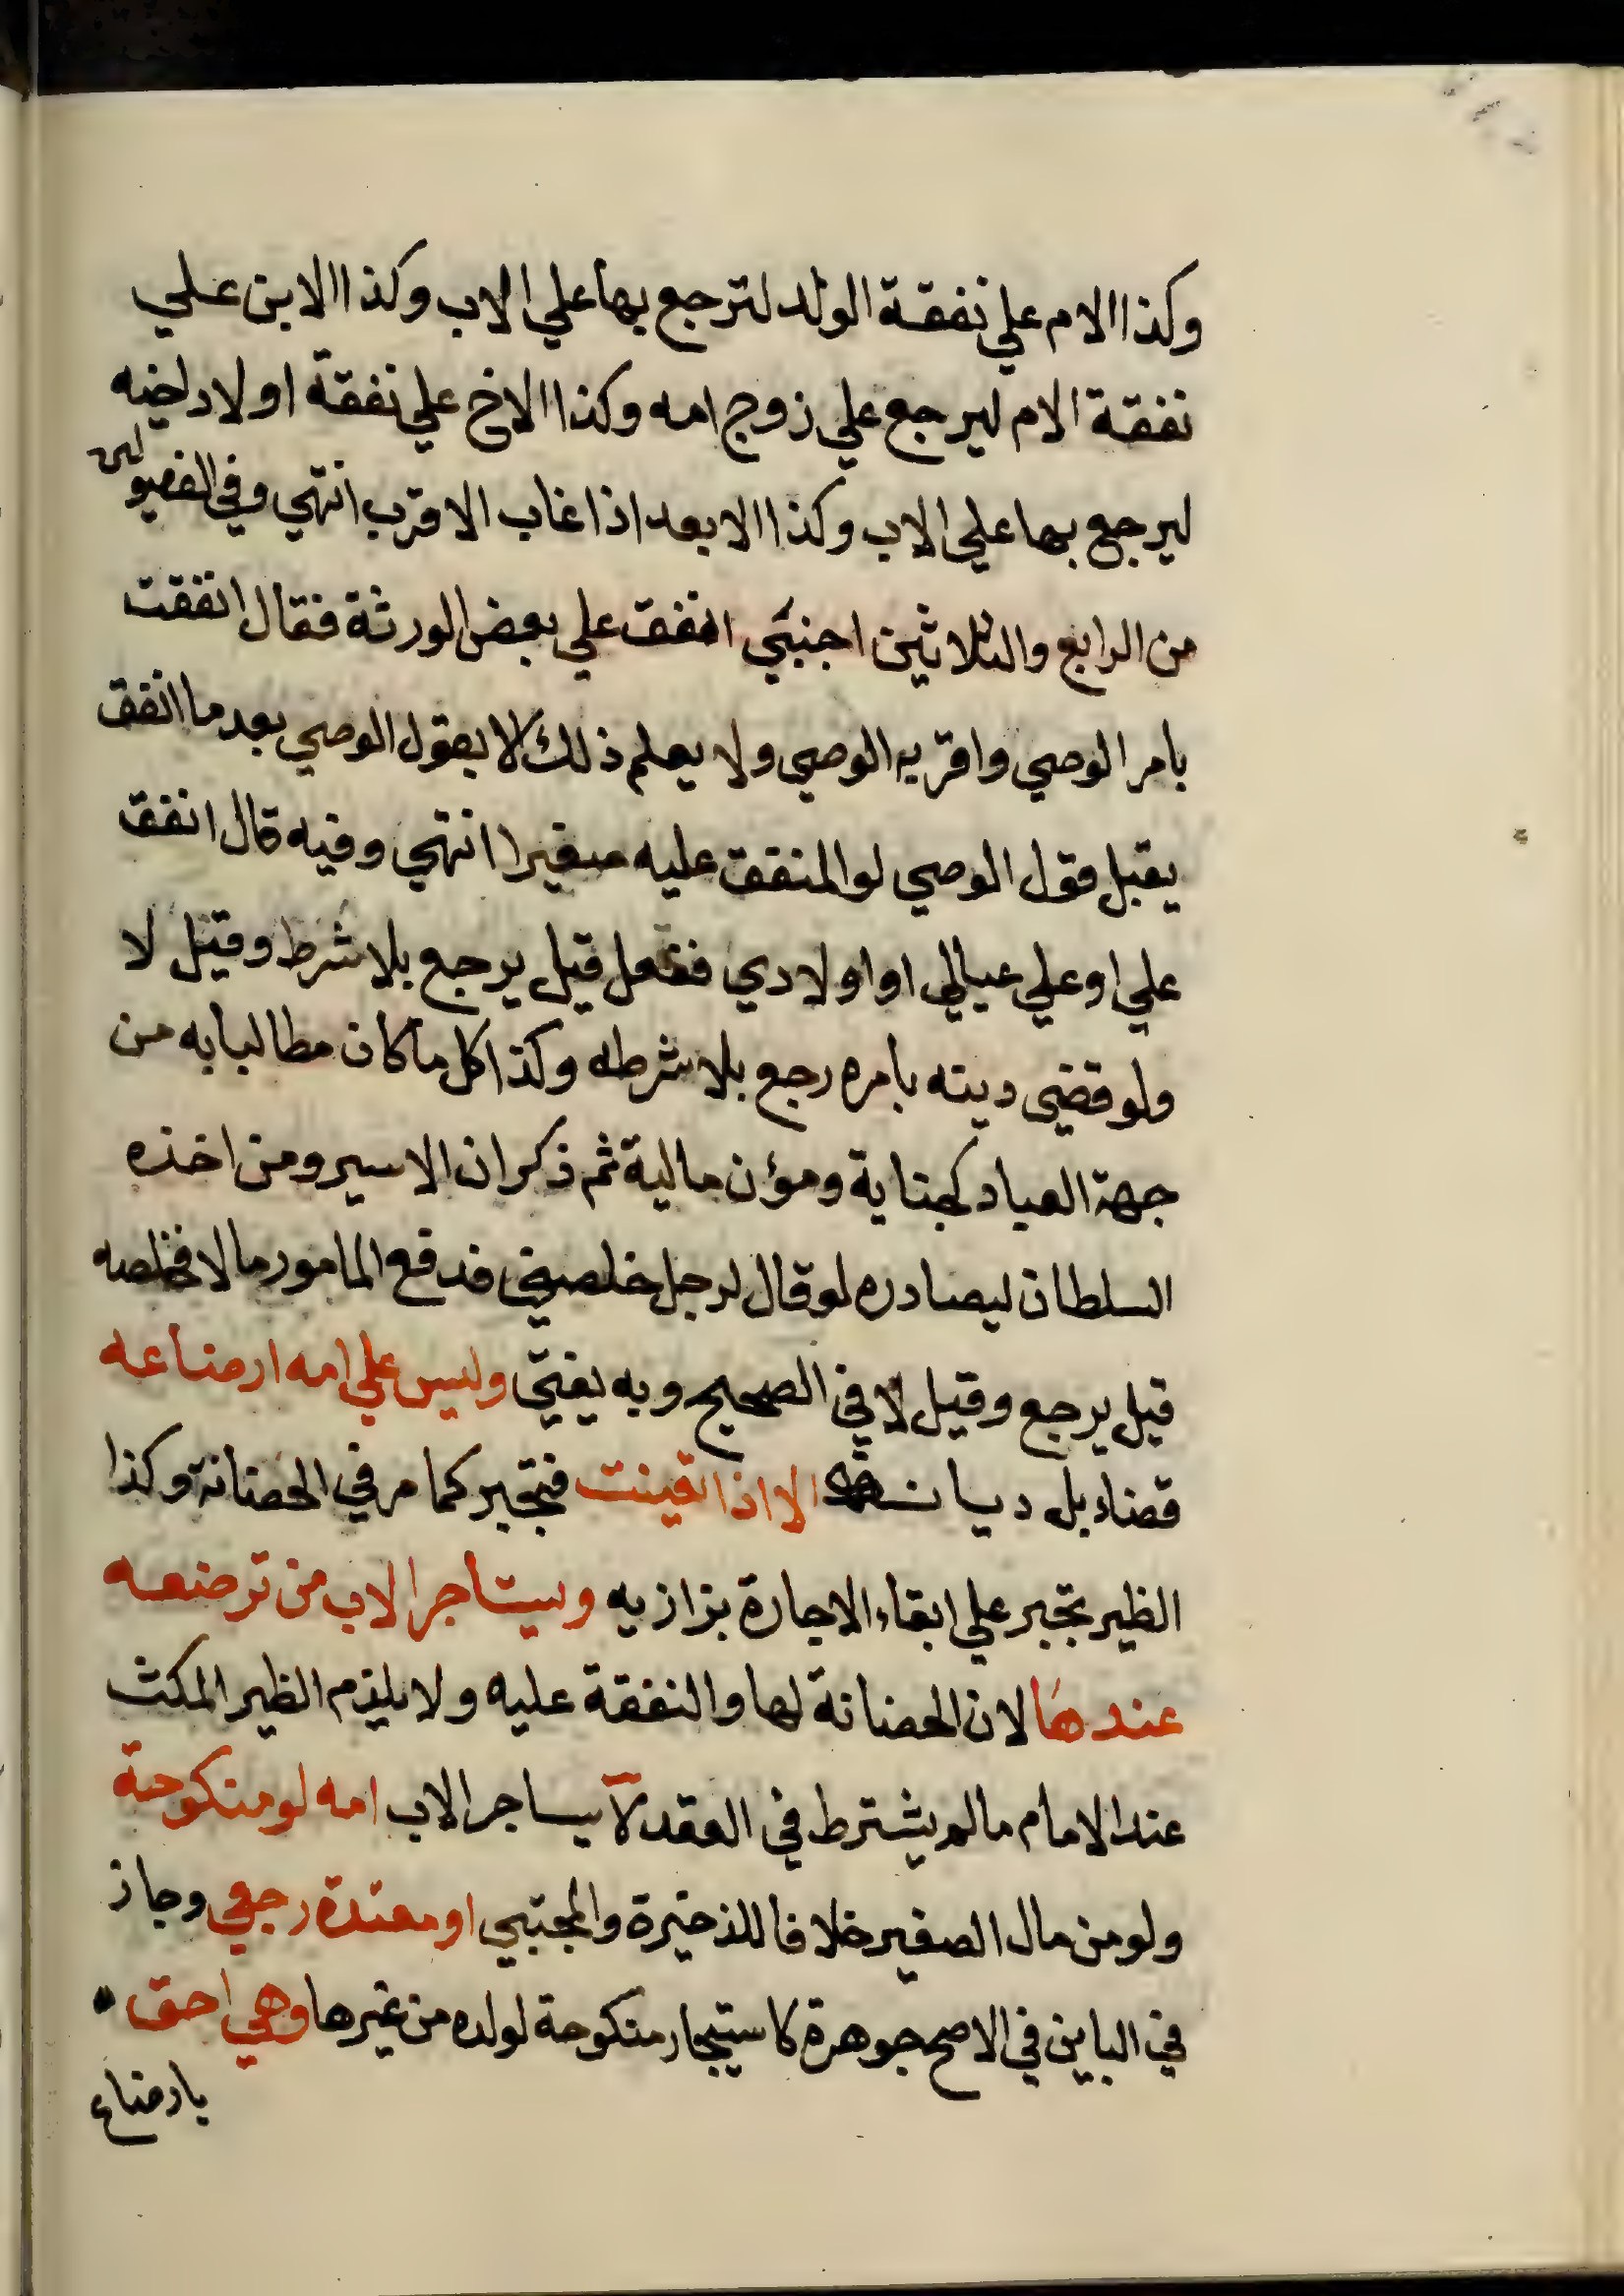 وكذا الام علي نفقة الولد لترجع بها علي الاب وكذا الابن علي
نفقة الام ليرجع علي زوج امه وكذا الاخ علي نفقة اولاد اخيه
ليرجع بها علي الاب وكذا الابعد اذا غاب الاقرب انتهي وفي الفصولين
من الرابع والثلاثين اجنبي انفق علي بعض الورثة فقال انفقت
بامر الوصي واقر به الوصي ولا يعلم ذلك الا بقول الوصي بعد ما انفق
يقبل قول الوصي لو المنفق عليه صغيرا انتهي وفيه قال انفق
علي او علي عيالي او اولادي ففعل قيل يرجع بلا شرط وقيل لا
ولو قضي دينه بامره رجع بلا شرطه وكذا كل ما كان مطالبا به من
جهة العباد كجناية ومؤن مالية ثم ذكر ان الاسير ومن اخذه
السلطان ليصادره لو قال لرجل خلصني فدفع المامور مالا فخلصه
قيل يرجع وقيل لا في الصحيح وبه يفتي وليس علي امه ارضاعه
قضاء بل ديانة الا اذا تعينت فتجبر كما مر في الحضانة وكذا
الظير تجبر علي ابقاء الاجارة بزازيه ويستاجر الاب من ترضعه
عندها لان الحضانة لها والنفقة عليه ولا يلزم الظير المكث
عند الامام مالم يشترط في العقد لا يساجر الاب امه لو منكوحة
ولو من مال الصغير خلافا للذخيرة والمجتبي او معتدة رجعي وجاز
في الباين في الاصح جوهرة كاستيجار منكوحة لولده من غيرها وهي احق
بارضاع